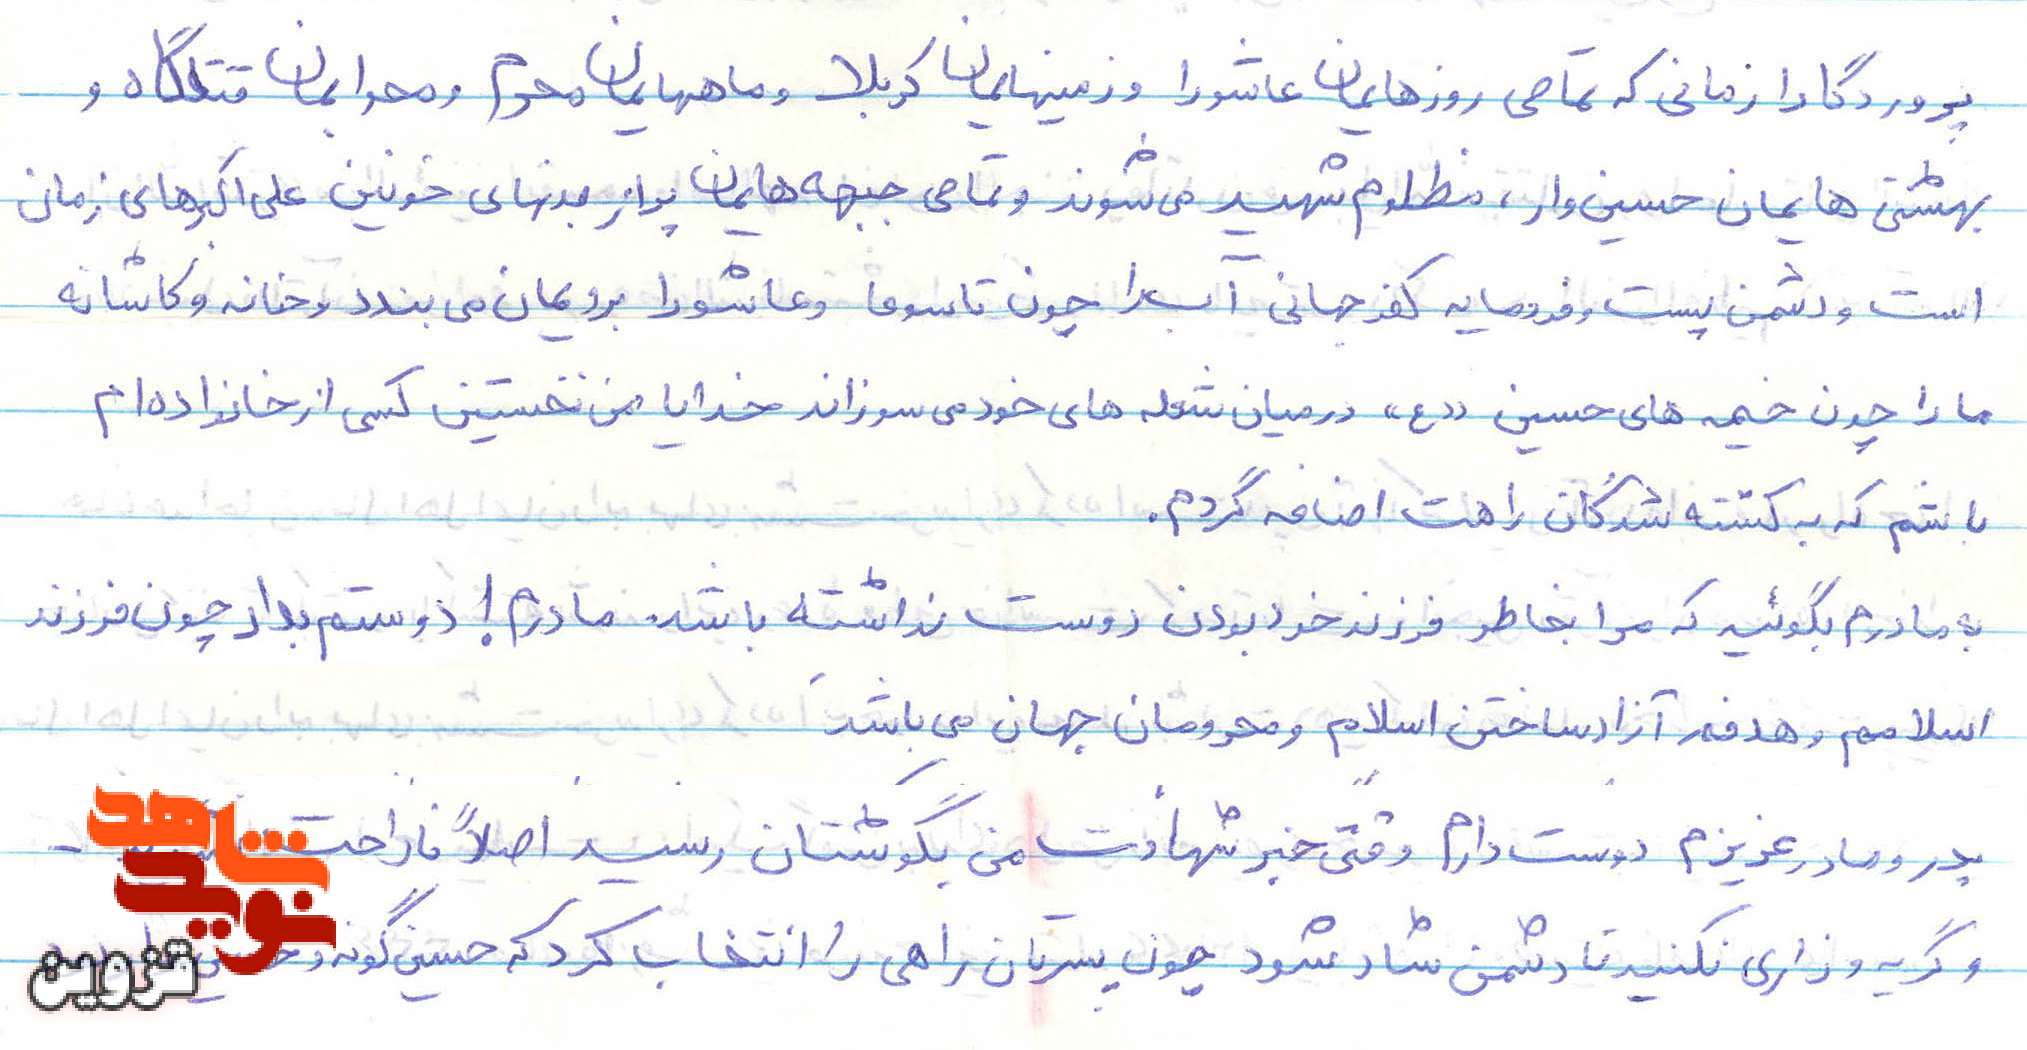 پروردگارا زمانی که تمامی روزهایمان عاشورا و زمینهایمان کربلا و ماههایمان محرم و محرابمان قتلگاه و
بهشتی هایمان حسین وار، مظلوم شهید می شوند و تمامی جبهه هایمان پر از بدنهای خونین علی اکبرهای زمان
است و دشمن پست و فرومایه کفر جهانی آب را چون تاسوعا و عاشورا برویمان می بندد و خانه و کاشانه
ما را چون خیمه های حسین «ع» در میان شعله های خود می سوزاند خدایا من نخستین کسی از خانواده ام
باشم که به کشته شدگان راهت اضافه گردم.
به مادرم بگوئید که مرا بخاطر فرزند خود بودن دوست نداشته باشد. مادرم! دوستم بدار چون فرزند
اسلامم و هدفم آزاد ساختن اسلام و محرومان جهان می باشد
پدر و مادر عزیزم دوست دارم وقتی خبر شهادت من بگوشتان رسید اصلاً ناراحت
و گریه و زاری نکنید تا دشمن شاد شود چون پسرتان راهی را انتخاب کرد که حسین گونه و
نوید شاهد
قزوین